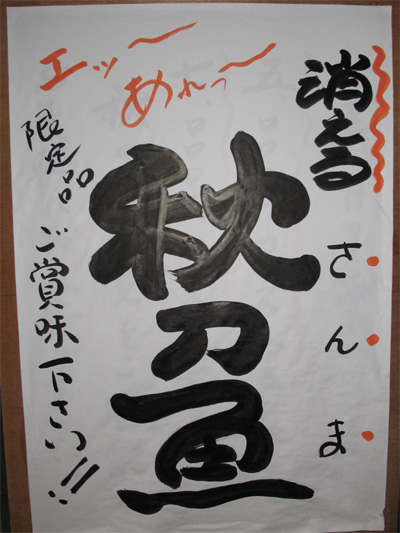 消える
さんま
エッ〜
あれっ〜
秋刀魚
限定品
ご賞味下さい!!